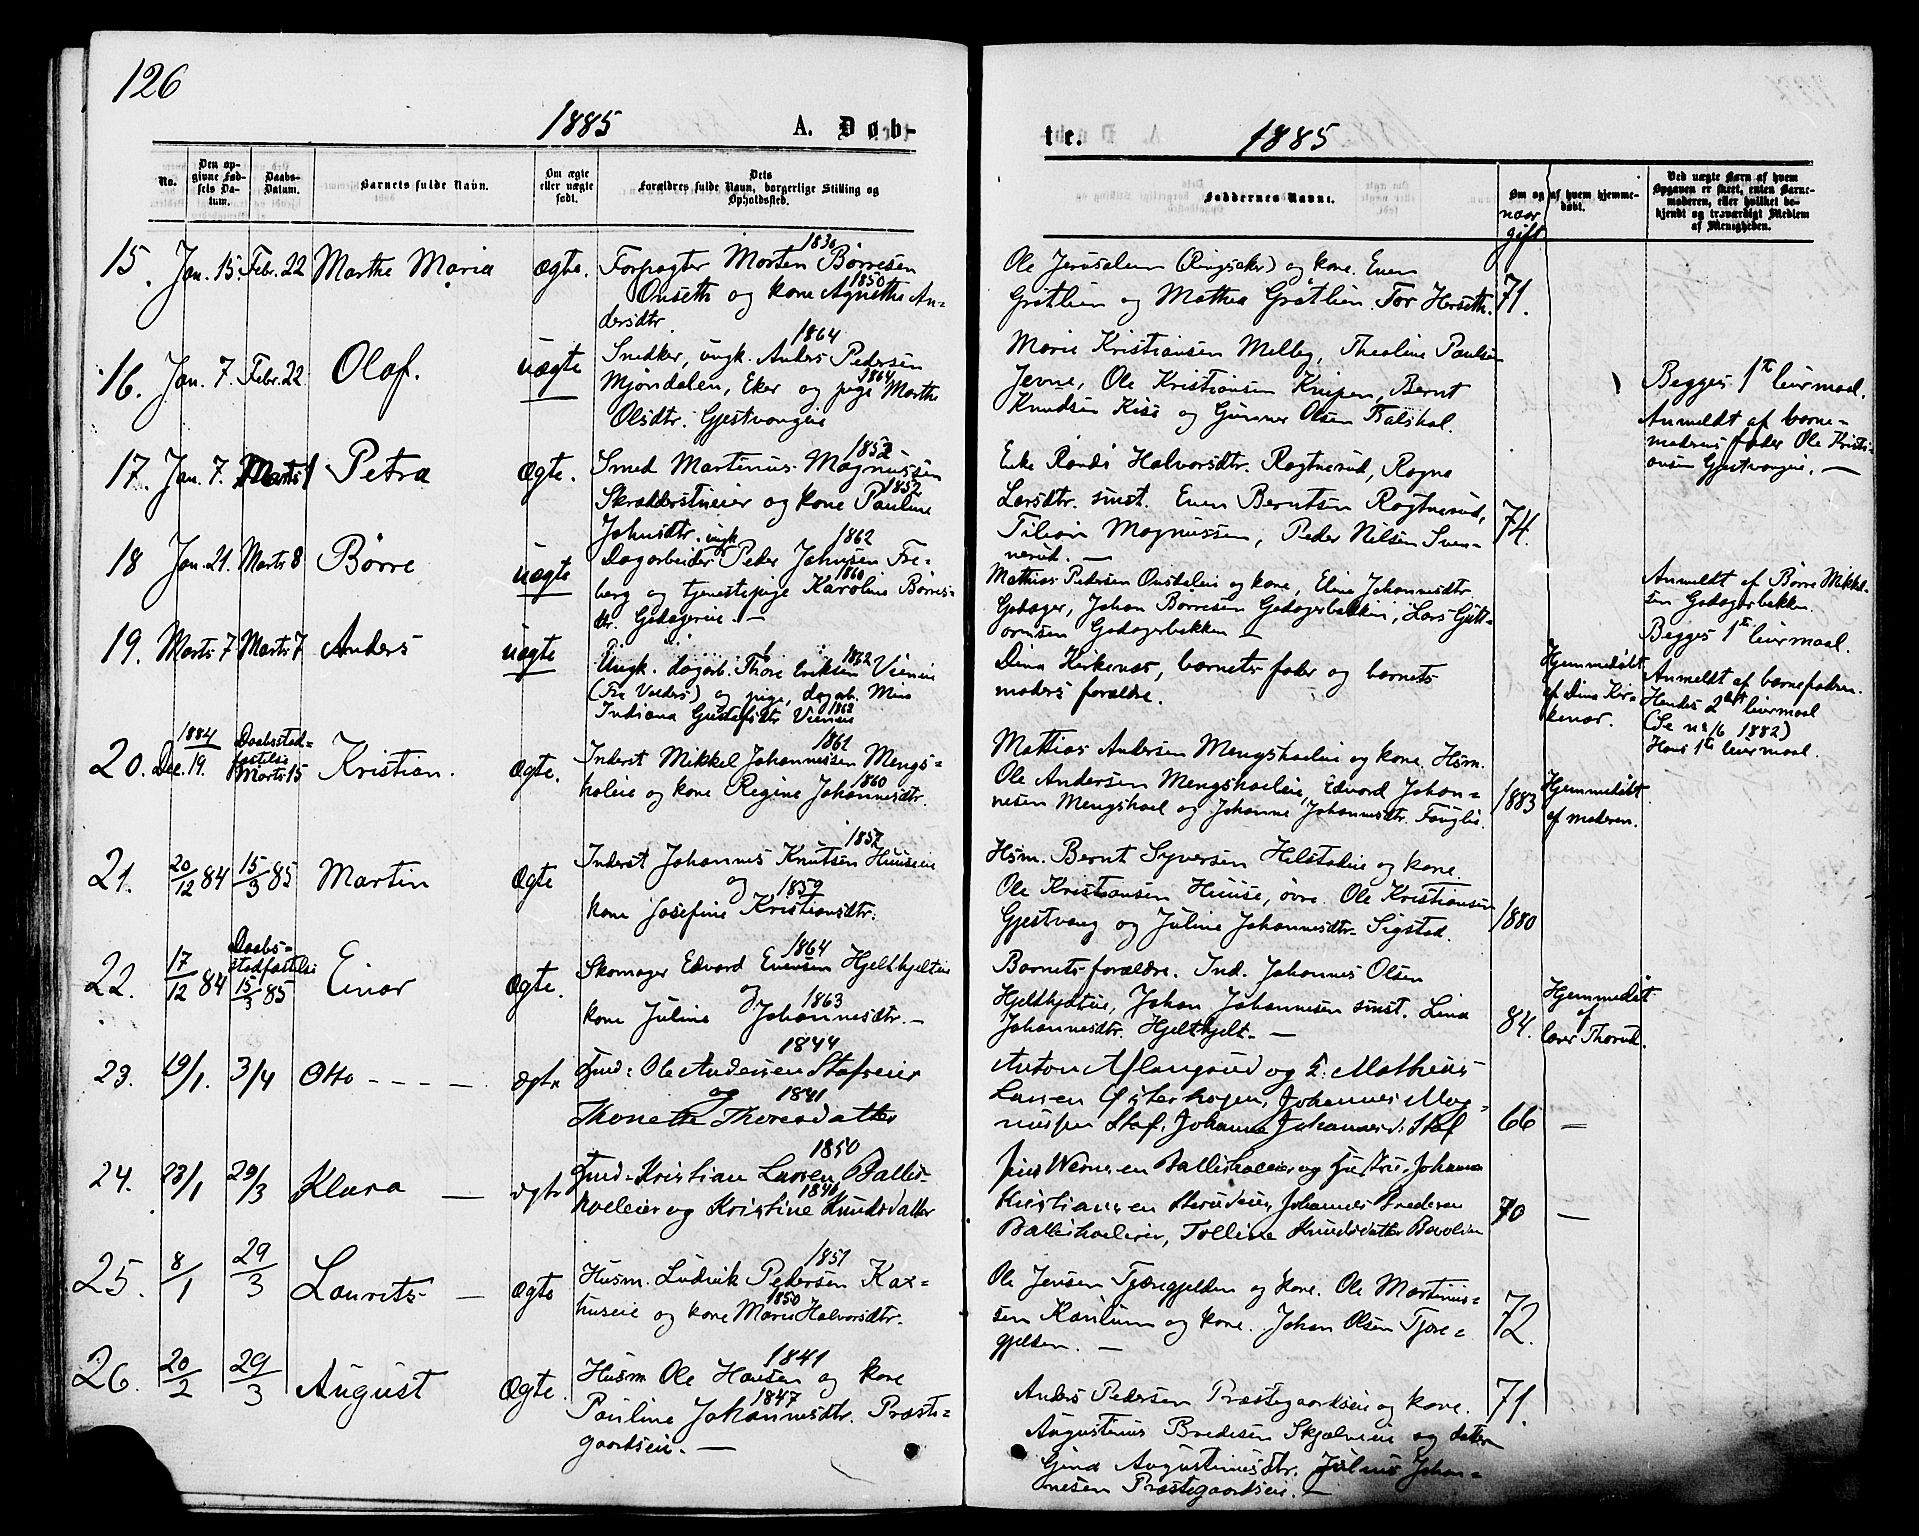 126
1885
A. Døb-
te.
1885
No.
Den op-
givne Fød-
sels Da-
tum.
Daabs-
Datum.
Barnets fulde Navn.
Om ægte
eller uægte
født.
Dets
Forældres fulde Navn, borgerlige Stilling og
Opholdssted.
Faddernes Navne.
Om og af hvem hjemme-
døbt.
naar
gift
Ved uægte Børn af hvem
Opgaven er skeet, enten Barne-
moderen, eller hvilket be-
kjendt og troværdigt Medlem
af Menigheden.
15. Jan. 15. Febr. 22 Marthe Maria ægte.
1830
Forpagter Morten Børresen
1850
Onseth og kone Agnethe An-
dersdtr.
Ole Jerusalem (Ringsaker) og kone. Even
Gråtlien og Mathea Gråtlien. Tor Herseth.
71.
16. Jan. 7. Febr. 22 Olaf. uægte
1864
Snedker, ungk. Anders Pedersen
1864
Mjøndalen, Eker og pige Marthe
Olsdtr. Gjestvangeie
Marie Kristiansen Melby, Thealine Paulsen
Jevne, Ole Kristiansen Knipen, Bernt
Knudsen Kise og Gunner Olsen Balshol.
Begges 1te leiermaal.
Anmeldt af barne-
moderens fader Ole Kristi-
ansen Gjestvangeie. —
17. Jan. 7. Marts 1 Petra Ægte.
1852
Smed Martinus Magnussen
1852
Skrædderstueeier og kone Pauline
Johnsdtr.
Eke Randi Halvorsdtr. Rogtnerud, Ragna
Larsdtr. smst. Even Berntsen Rogtnerud,
Tilvin Magnussen, Peder Nilsen Sven-
nerud. —
74.
18 Jan. 21. Marts 8 Børre uægte
ungk. 1862
Dagarbeider Peder Johnsen Fre-
1860
berg og tjenestepige Karoline Børres-
dtr. Godagereie. —
Mathias Pedersen Onsdaleie og kone, Eline Johannesdtr.
Godager, Johan Børresen Godagerbakken, Lars Gutt-
ormsen Godagerbakken —
Anmeldt af Børre Mikkel-
sen Godagerbakken.
Begges 1te leiermaal.
19. Marts 7 Marts 7 Anders uægte
1862
Ungk. dagarb. Thore Eriksen Vieneie
(Fra Valders) og pige, dagarb. Mina
1862
Indiana Gustafsdtr. Vieneie
Dina Kirkenær, barnets fader og barnets
moders forældre.
Hjemmedøbt
af Dina Kir-
kenær.
Anmeldt af barnefaderen.
Hendes 2det leiermaal
(Se no 16 1882)
Hans 1te leiermaal.
20. 1884
Dec. 19. Daabsstad-
fæstelse
Marts 15 Kristian. Ægte.
1861
Inderst Mikkel Johannessen Mengs-
1860
holeie og kone Regine Johannesdtr.
Mathias Andersen Mengshoeleie og kone. Hsm.
Ole Andersen Mengshoeleie, Edvard Johan-
nesen Mengshoel og Johanne Johannesdtr. Fanglie.
1883
Hjemmedøbt
af moderen.
21. 20/12 84 15/3 85 Martin Ægte
1852
Inderst Johannes Knutsen Huuseie
og 1859
kone Josefine Kristiansdtr.
Hsm. Bernt Syversen Helstadeie og kone.
Ole Kristiansen Huuse, øvre. Ole Kristiansen
Gjestvang og Juline Johannesdtr. Sigstad.
1880
22. 17/12 84 Daabs-
stadfæstelse
15/3 85 Einar Ægte.
1864
Skomager Edvard Evensen Hjelthjelteie
og 1863
kone Juline Johannesdtr. —
Barnets forældre. Ind. Johannes Olsen
Hjelthjelteie, Johan Johannesen smst. Lina
Johannesdtr. Hjelthjelt. —
84.
Hjemmedøbt
af
lærer Thorud.
23. 19/1. 3/4 Otto - - - — ægte
1844
Ind: Ole Andersen Stafseier
og 1841
Thonette Thoresdatter
Anton Aflangrud og F. Matheus
Larsen Østerhagen, Johannes Mag-
nussen Staf, Johanne Johannesd. Staf
66 —
24. 28/1 29/3 Klara — ægte
1850
Ind. Kristian Larsen Ballis-
1846
hoeleier og Kristine Knudsdatter
Jens Wernersen Ballishoeleier og Hustru, Johanna
Kristiansen Sterudeier, Johannes Bredesen
Ballishoeleier, Tolline Knudsdatter Bavolien
70 —
25. 8/1 29/3 Laurits — Ægte
1851
Husm. Ludvik Pedersen Kax-
1850
huseie og kone Marie Halvorsdtr.
Ole Jensen Tjæregjelden og kone. Ole Martinus-
sen Kaulum og kone. Johan Olsen Tjære-
gjelden. —
72.
26. 20/2 29/3 August Ægte.
1841
Husm Ole Hansen og kone
1847
Pauline Johannesdtr. Præste-
gaardseie. —
Anders Pedersen Præstegaardseie og kone.
Augustinus Bredesen Skjælveeie og datter
Gina Augustinusdtr. Julius Johan-
nesen Præstegaardseie. —
71.